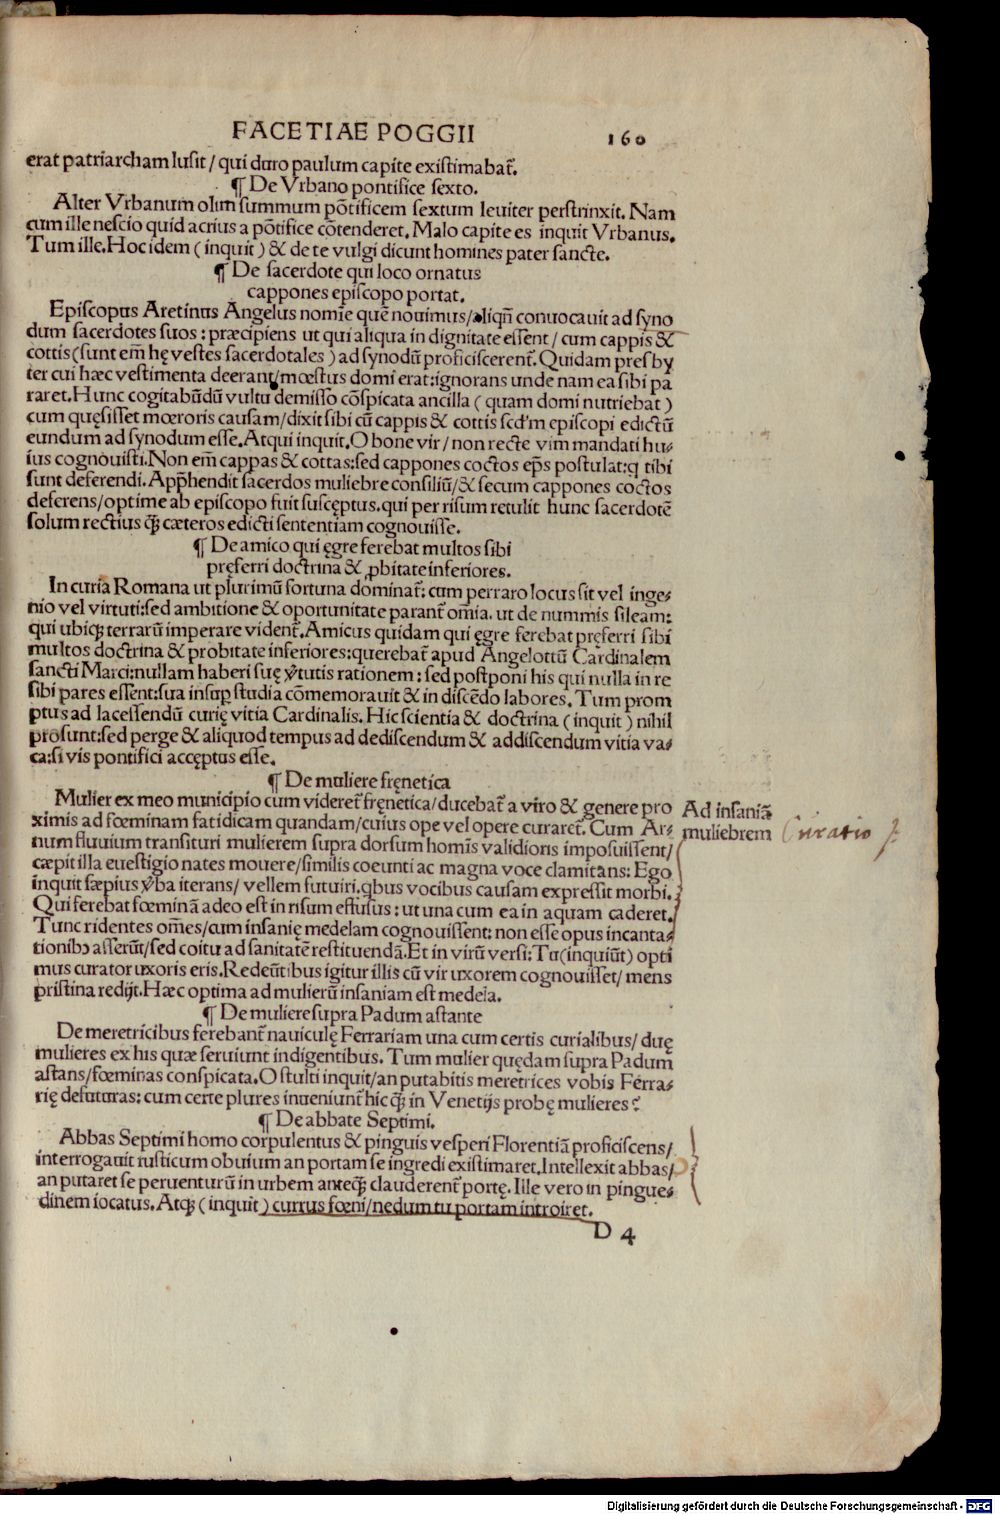 FACETIAE POGGII 160
erat patriarcham lusit/ qui duro paulum capite existimabat᷑.
¶ De Vrbano pontifice sexto.
Alter Vrbanum olim summum põtificem sextum leuiter perstrinxit. Nam
cum ille nescio quid acrius a põtifice cõtenderet. Malo capite es inquit Vrbanus.
Tum ille. Hoc idem (inquit) & de te vulgi dicunt homines pater sancte.
¶ De sacerdote qui loco ornatus
cappones episcopo portat.
Episcopus Aretinus Angelus nomĩe quẽ nouimus/aliqñ conuocauit ad syno
dum sacerdotes suos: præcipiens ut qui aliqua in dignitate essent/ cum cappis &
cottis(sunt em̃ hę vestes sacerdotales) ad synodũ proficiscerent᷑. Quidam presby
ter cui hæc vestimenta deerant/mœstus domi erat: ignorans unde nam ea sibi pa
raret. Hunc cogitabũdũ vultu demisso cõspicata ancilla (quam domi nutriebat)
cum quęsisset mœroris causam/dixit sibi cũ cappis & cottis scd'm episcopi edictũ
eundum ad synodum esse. Atqui inquit. O bone vir/ non recte vim mandati hu⸗
ius cognouisti. Non em̃ cappas & cottas: sed cappones coctos ep̃s postulat: q tibi
sunt deferendi. App̃hendit sacerdos muliebre consiliũ/& secum cappones coctos
deferens/optime ab episcopo fuit suscęptus. qui per risum retulit hunc sacerdotẽ
solum rectius q̃ȝ cæteros edicti sententiam cognouisse.
¶ De amico qui ęgre ferebat multos sibi
pręferri doctrina & ꝓbitate inferiores.
In curia Romana ut plurimũ fortuna dominat᷑: cum perraro locus sit vel inge⸗
nio vel virtuti: sed ambitione & oportunitate parant᷑ om̃ia. ut de nummis sileam:
qui ubiqȝ terrarũ imperare vident᷑. Amicus quidam qui ęgre ferebat pręferri sibi
multos doctrina & probitate inferiores: querebat᷑ apud Angelottũ Cardinalem
sancti Marci: nullam haberi suę ṽtutis rationem: sed postponi his qui nulla in re
sibi pares essent: sua insuꝑ studia cõmemorauit & in discẽdo labores. Tum prom
ptus ad lacessendũ curię vitia Cardinalis. Hic scientia & doctrina (inquit) nihil
prosunt: sed perge & aliquod tempus ad dediscendum & addiscendum vitia va⸗
ca: si vis pontifici accęptus esse.
¶ De muliere fręnetica
Mulier ex meo municipio cum videret᷑ fręnetica/ducebat᷑ a viro & genere pro
ximis ad fœminam fatidicam quandam/cuius ope vel opere curaret᷑. Cum Ar⸗
num fluuium transituri mulierem supra dorsum homĩs validioris imposuissent/
cæpit illa euestigio nates mouere/similis coeunti ac magna voce clamitans: Ego
inquit sæpius ṽba iterans/ vellem futuiri. qbus vocibus causam expressit morbi.
Qui ferebat fœminã adeo est in risum effusus: ut una cum ea in aquam caderet.
Tunc ridentes om̃es/cum insanię medelam cognouissent: non esse opus incanta⸗
tionibꝰ asserũt/sed coitu ad sanitatẽ restituendã. Et in virũ versi: Tu(inquiũt) opti
mus curator uxoris eris. Redeũtibus igitur illis cũ vir uxorem cognouisset/ mens
pristina redijt. Hæc optima ad mulierũ insaniam est medela.
Ad insaniã
muliebrem Curatio
¶ De muliere supra Padum astante
De meretricibus ferebant᷑ nauiculę Ferrariam una cum certis curialibus/ duę
mulieres ex his quæ seruiunt indigentibus. Tum mulier quędam supra Padum
astans/fœminas conspicata. O stulti inquit/an putabitis meretrices vobis Ferra⸗
rię defuturas: cum certe plures inueniunt᷑ hic q̃ȝ in Venetijs probę mulieres?
¶ De abbate Septimi.
Abbas Septimi homo corpulentus & pinguis vesperi Florentiã proficiscens/
interrogauit rusticum obuium an portam se ingredi existimaret. Intellexit abbas/
an putaret se peruenturũ in urbem anteq̃ȝ clauderent᷑ portę. Ille vero in pingue⸗
dinem iocatus. Atqȝ (inquit) currus fœni/nedum tu portam introiret.
D 4
Digitalisierung gefördert durch die Deutsche Forschungsgemeinschaft - DFG